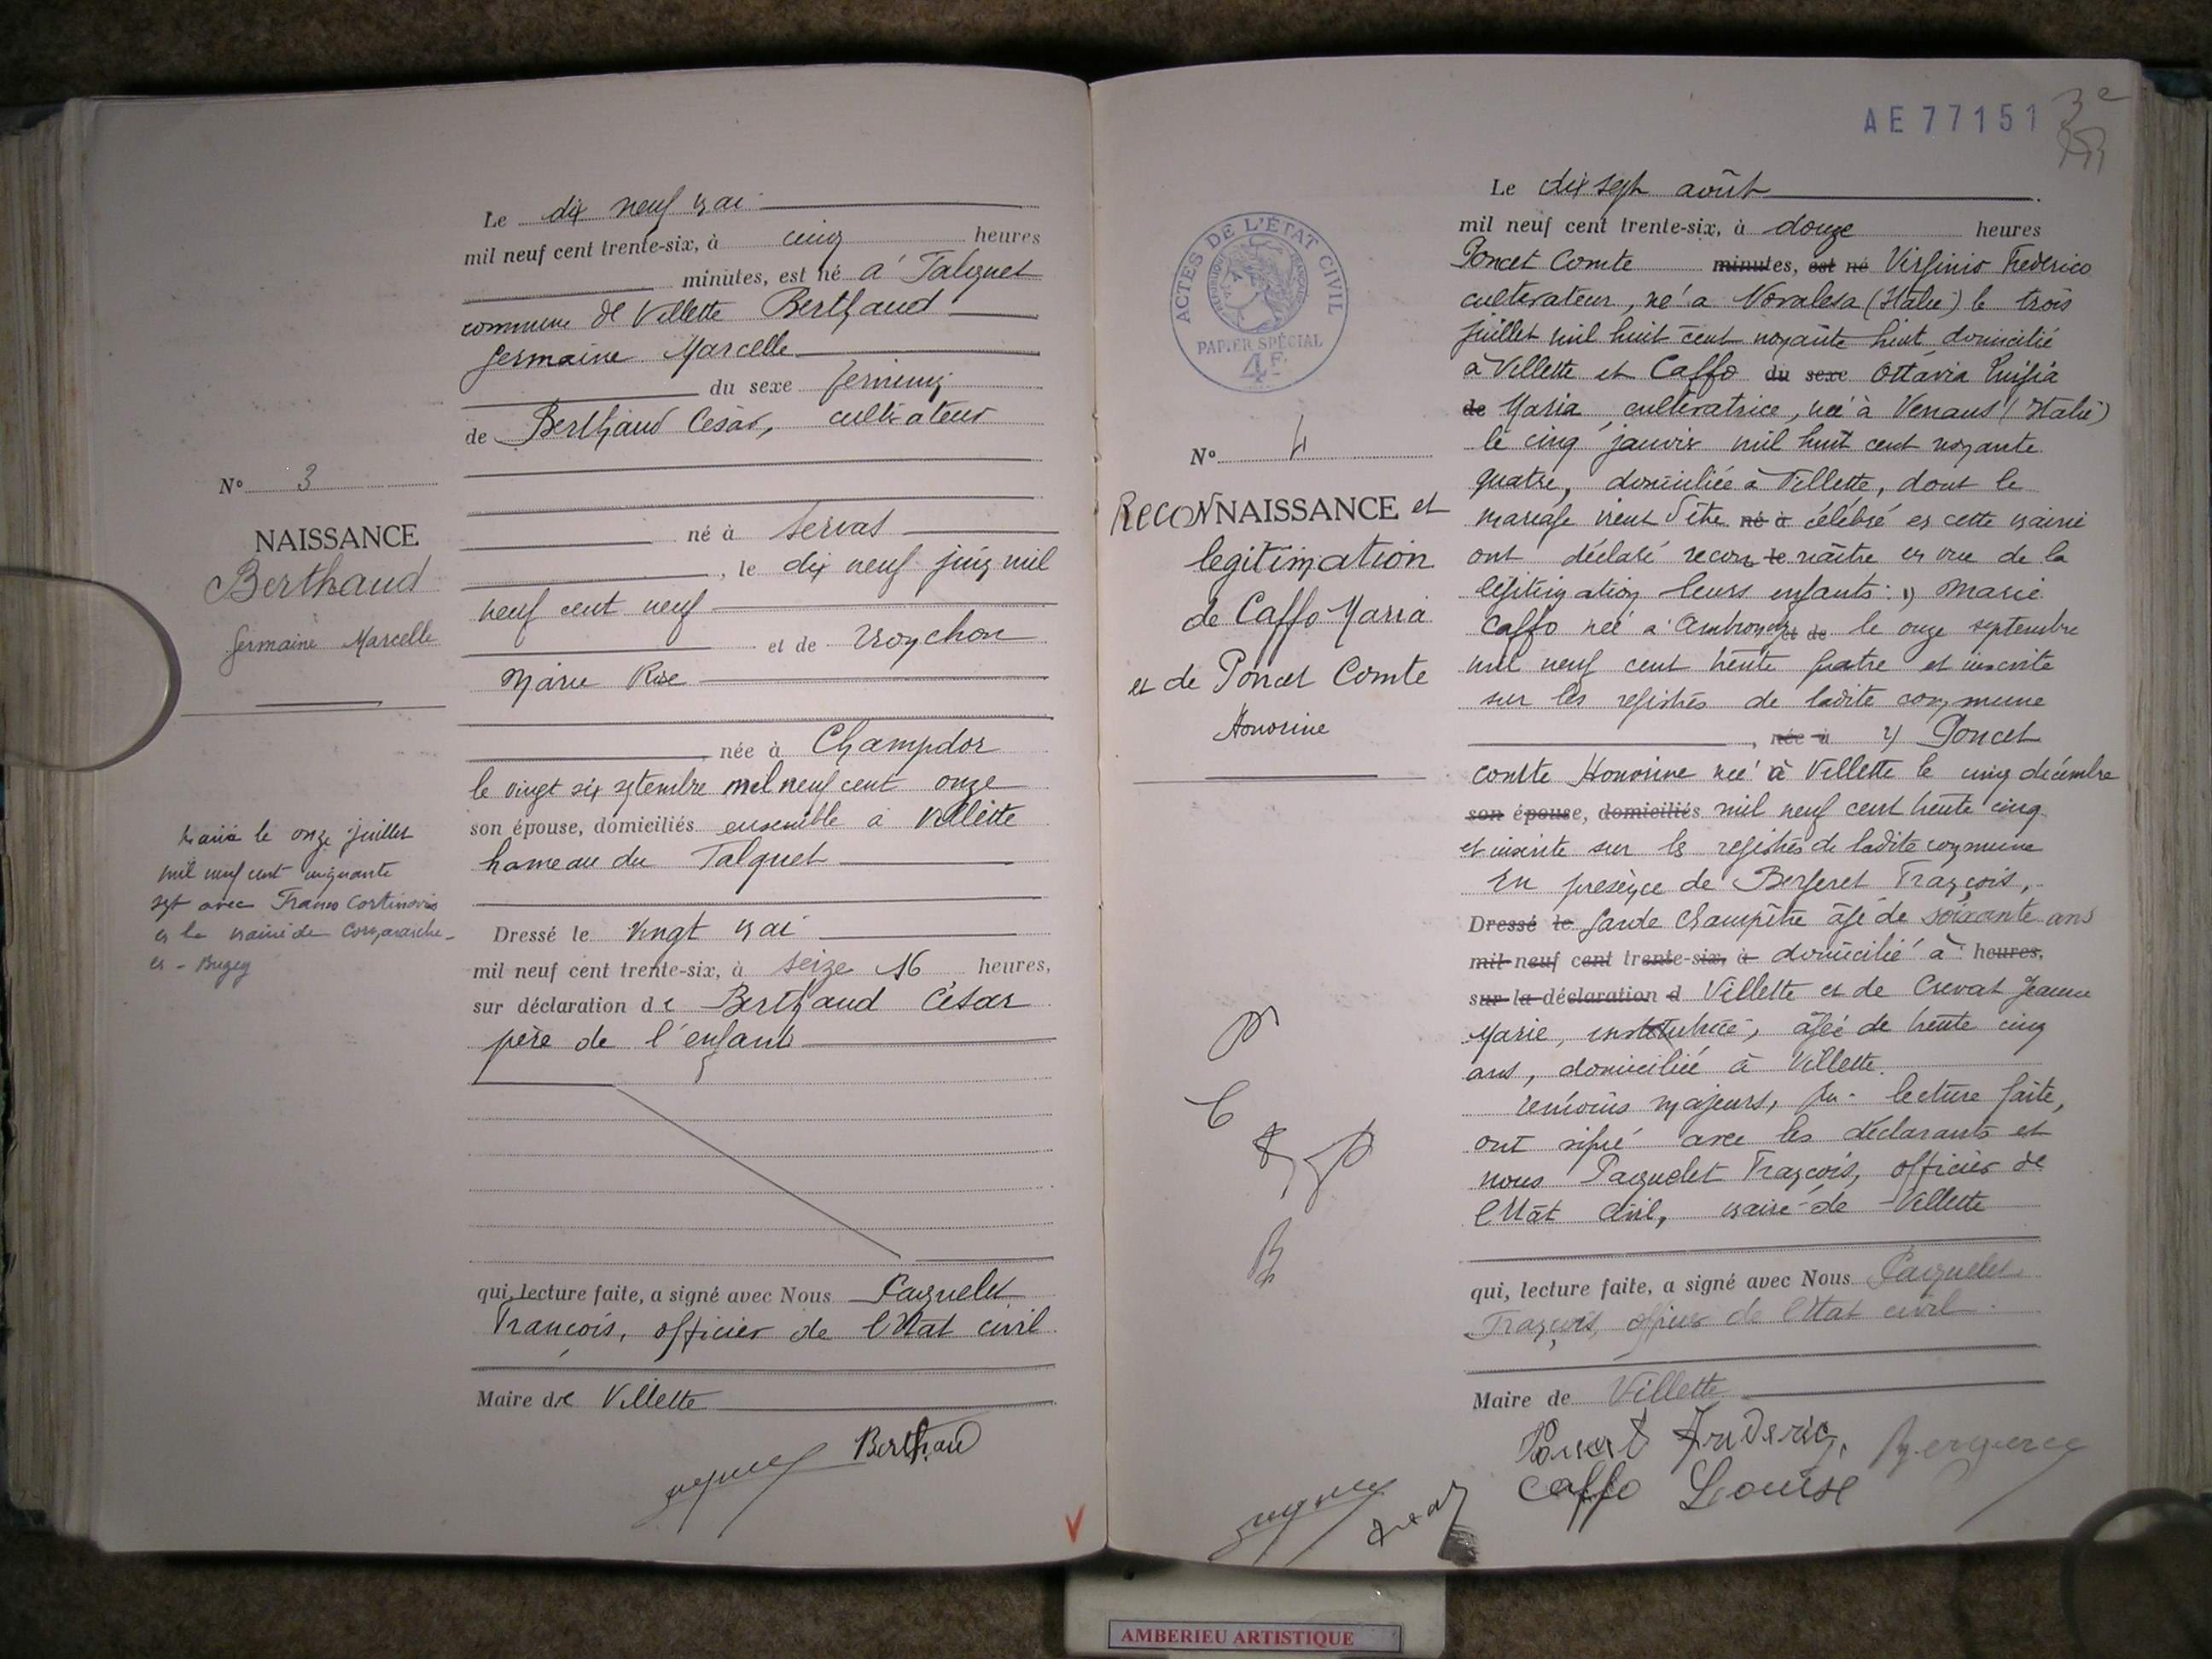 Le dix neuf mai
mil neuf cent trente-six, à cinq heures
minutes, est né à Talquet
commune de Villette Berthaud
Germaine Marcelle
du sexe féminin
de Berthaud César, cultivateur
N° 3
né à Servas
NAISSANCE
, le dix neuf juin mil
Berthaud
neuf cent neuf
Germaine Marcelle
et de Troychon
Marie Rose
née à Champdor
le vingt six septembre mil neuf cent onze
son épouse, domiciliés ensemble à Villette
hameau du Talquet
Marié le onze juillet
mil neuf cent cinquante
sept avec Franco Cortinovis
en la mairie de Cormaranche-
en-Bugey
Dressé le vingt mai
mil neuf cent trente-six, à seize 16 heures,
sur déclaration de Berthaud César
père de l'enfant
qui, lecture faite, a signé avec Nous Paquelet
François, officier de l'Etat civil
Maire de Villette
Berthaud
AE 77151
3e
ACTES DE L'ÉTAT CIVIL
RÉPUBLIQUE FRANÇAISE
PAPIER SPÉCIAL
4F
N° 4
RECONNAISSANCE et
legitimation
de Caffo Maria
et de Poncet Comte
Honorine
Le dix sept août
mil neuf cent trente-six, à douze heures
Poncet Comte minutes, est né Virginio Frederico
cultivateur, né à Novalesa (Italie) le trois
juillet mil huit cent noyante huit domicilié
à Villette et Caffo du sexe Ottavia Luigia
de Maria, cultivatrice, née à Venaus (Italie)
le cinq janvier mil huit cent noyante
quatre, domiciliée à Villette, dont le
mariage vient d'être né à célébré en cette mairie
ont déclaré recon le naître en vue de la
légitimation leurs enfants: 1) Marie
Caffo née à Ambronay et de le onze septembre
mil neuf cent trente quatre et inscrite
sur les registres de ladite commune
, née à 2) Poncet
comte Honorine née à Villette le cinq décembre
son épouse, domiciliés mil neuf cent trente cinq
et inscrite sur les registres de ladite commune
En présence de Bergeret François,
Dressé le garde champêtre âgé de soixante ans
mil neuf cent trente-six, à domicilié à heures,
sur la déclaration d Villette et de Crevat Jeanne
Marie, institutrice, âgée de trente cinq
ans, domiciliée à Villette.
témoins majeurs, qui lecture faite,
ont signé avec les déclarants et
nous Paquelet François, officier de
l'Etat civil, maire de Villette
qui, lecture faite, a signé avec Nous Paquelet
François, officier de l'Etat civil.
Maire de Villette
Poncet Frederic, Bergeret
Caffo Louise
AMBERIEU ARTISTIQUE